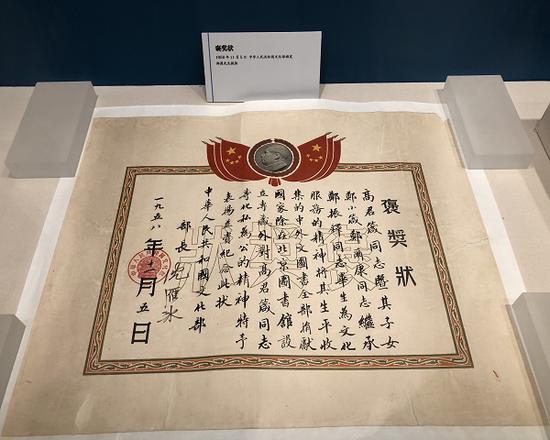 褒奖状
1958 年 11 月 5 日 中华人民共和国文化部颁发
褒獎狀
高君箴同志暨其子女
鄭小箴鄭爾康同志繼承
鄭振鐸同志畢生為文化
服務的精神將其生平收
集的中外文圖書全部捐献
國家除在北京圖書館設
立專藏外對高君箴同志
等化私為公的精神特予
表揚並資紀念此狀
中華人民共和國文化部
部長 沈雁冰
一九五八年十一月五日